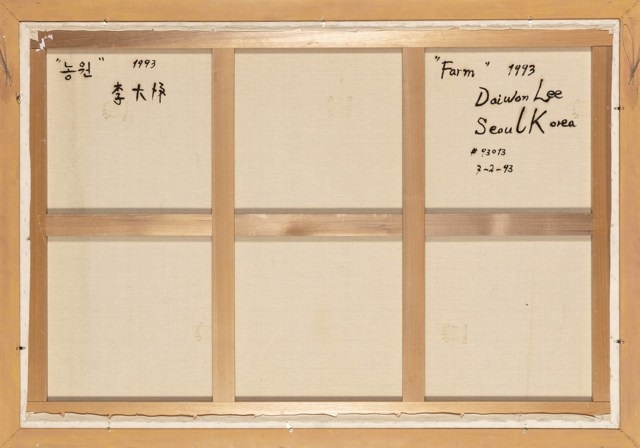 "농원" 1993
李大源
"Farm" 1993
Daiwon Lee
Seoul Korea
# 93013
7-2-93